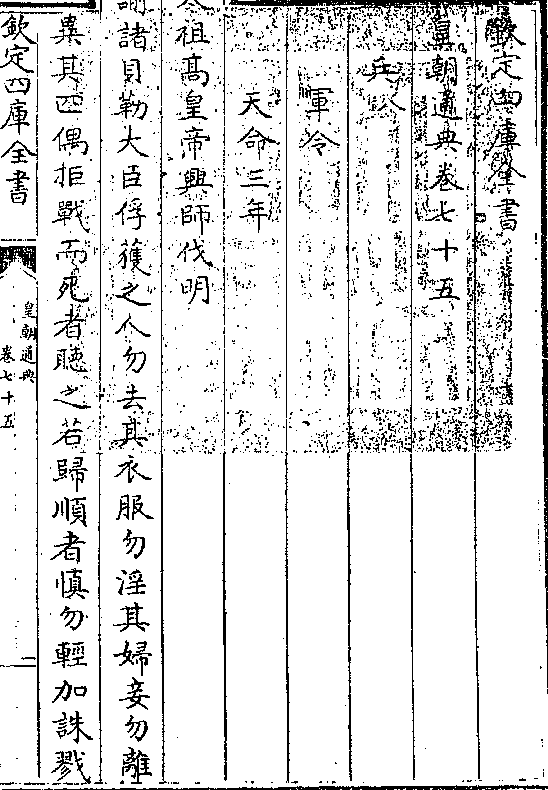 欽定四庫全書
皇朝通典卷七十五
兵八
軍令
天命三年
太祖高皇帝興師伐明
諭諸貝勒大臣俘獲之人勿去其衣服勿淫其婦妾勿離
異其匹偶拒戰而死者聽之若歸順者慎勿輕加誅戮
欽定四庫全書
皇朝通典
卷七十五
一